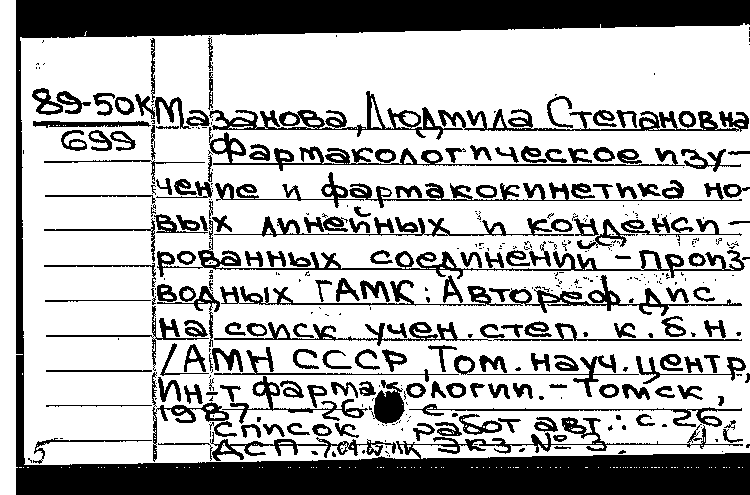 89-50К
699
Мазанова, Людмила Степановна
Фармакологическое изу-
чение и фармакокинетика но-
вых линейных и конденси-
рованных соединений - произ-
водных ГАМК: Автореф. дис.
на соиск. учен. степ. к.б.н.
/АМН СССР, Том. науч. центр,
Ин-т фармакологии. - Томск,
1987. - 26 с.
Список работ авт.: с. 26.
ДСП. Экз. № 3.
А.С.
5